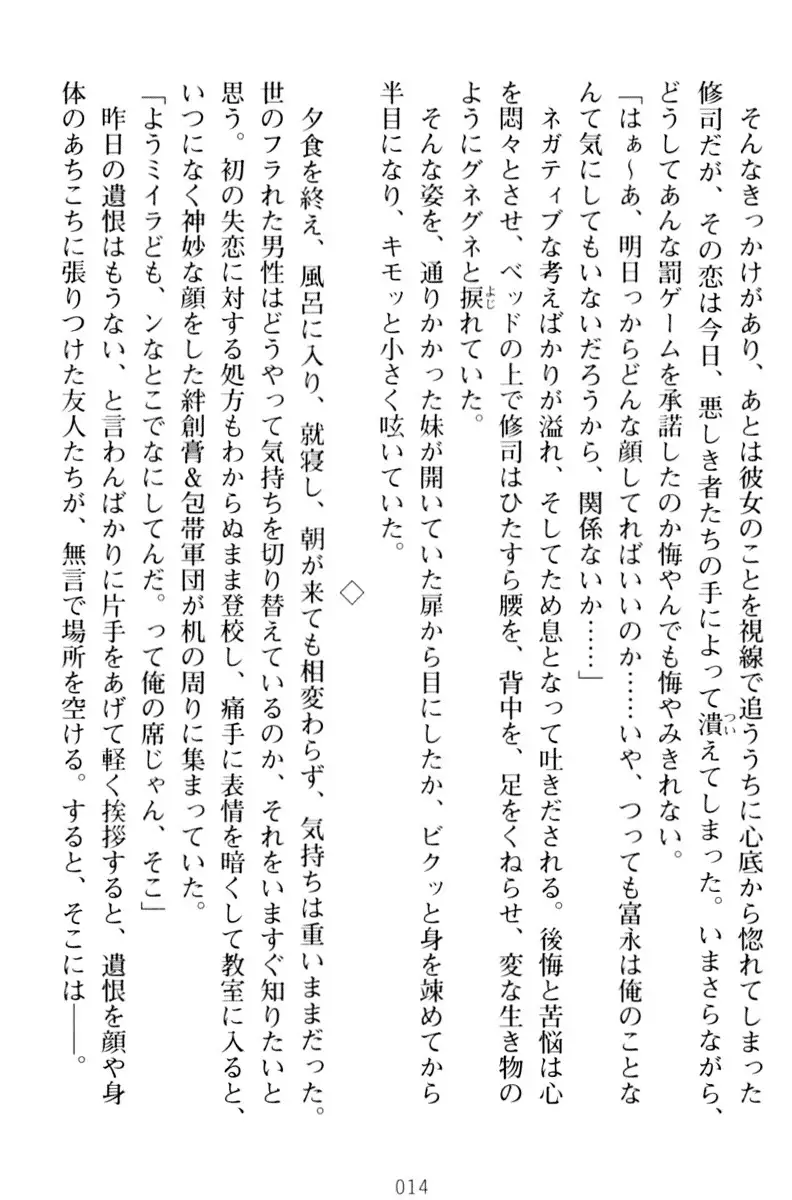 そんなきっかけがあり、あとは彼女のことを視線で追ううちに心底から惚れてしまった
修司だが、その恋は今日、悪しき者たちの手によって潰えてしまった。いまさらながら、
つい
どうしてあんな罰ゲームを承諾したのか悔やんでも悔やみきれない。
「はぁ～あ、明日っからどんな顔してればいいのか……いや、つっても富永は俺のことな
んて気にしてもいないだろうから、関係ないか……」
ネガティブな考えばかりが溢れ、そしてため息となって吐きだされる。後悔と苦悩は心
を悶々とさせ、ベッドの上で修司はひたすら腰を、背中を、足をくねらせ、変な生き物の
ようにグネグネと捩れていた。
よじ
そんな姿を、通りかかった妹が開いていた扉から目にしたか、ビクッと身を竦めてから
半目になり、キモッと小さく呟いていた。
◇
夕食を終え、風呂に入り、就寝し、朝が来ても相変わらず、気持ちは重いままだった。
世のフラれた男性はどうやって気持ちを切り替えているのか、それをいますぐ知りたいと
思う。初の失恋に対する処方もわからぬまま登校し、痛手に表情を暗くして教室に入ると、
いつになく神妙な顔をした絆創膏＆包帯軍団が机の周りに集まっていた。
「ようミイラども、ンなとこでなにしてんだ。って俺の席じゃん、そこ」
昨日の遺恨はもうない、と言わんばかりに片手をあげて軽く挨拶すると、遺恨を顔や身
体のあちこちに張りつけた友人たちが、無言で場所を空ける。すると、そこには――。
014